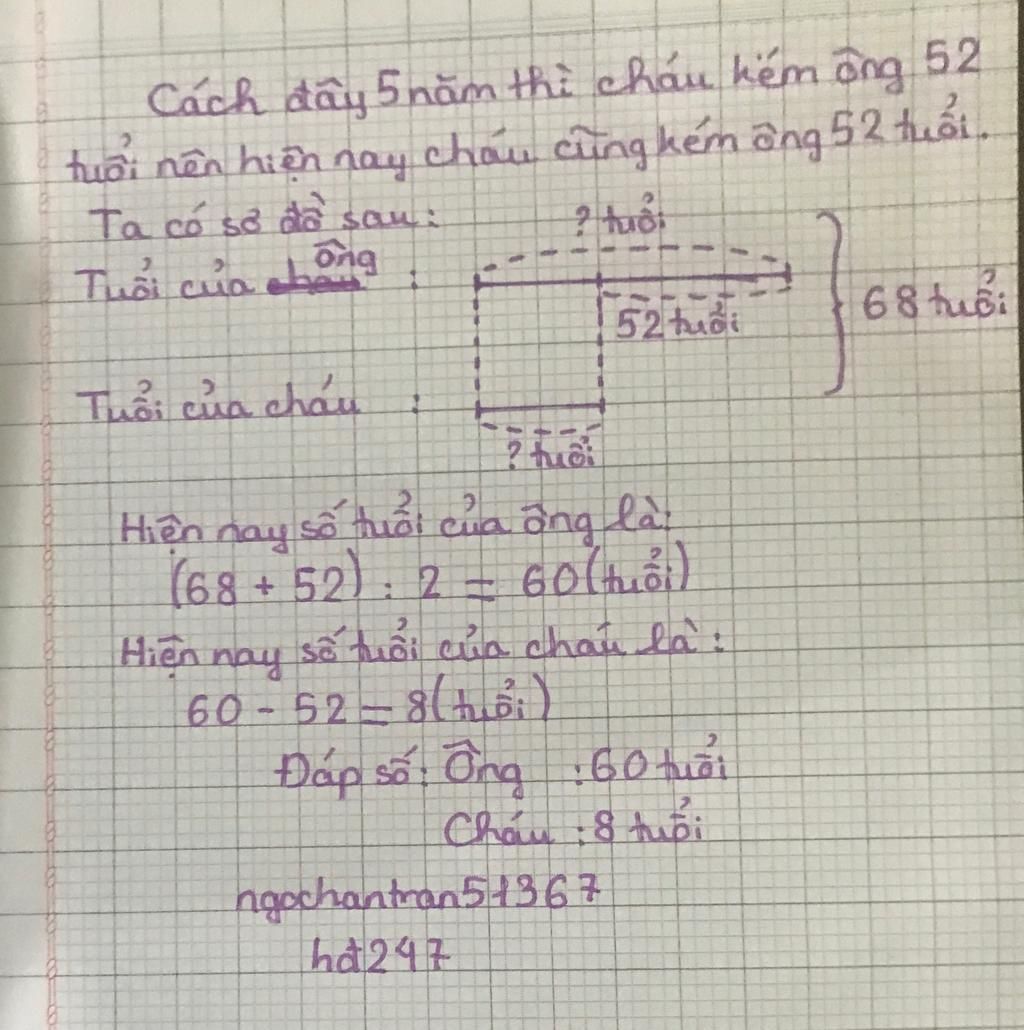 Cách đây 5 năm thì cháu kém ông 52
tuổi nên hiện nay cháu cũng kém ông 52 tuổi.
Ta có sơ đồ sau:
? tuổi
ông
Tuổi của cháu :
52 tuổi
68 tuổi
Tuổi của cháu :
? tuổi
Hiện nay số tuổi của ông là:
(68 + 52) : 2 = 60 (tuổi)
Hiện nay số tuổi của cháu là:
60 - 52 = 8 (tuổi)
Đáp số: Ông : 60 tuổi
Cháu : 8 tuổi
ngochantran51367
hđ247